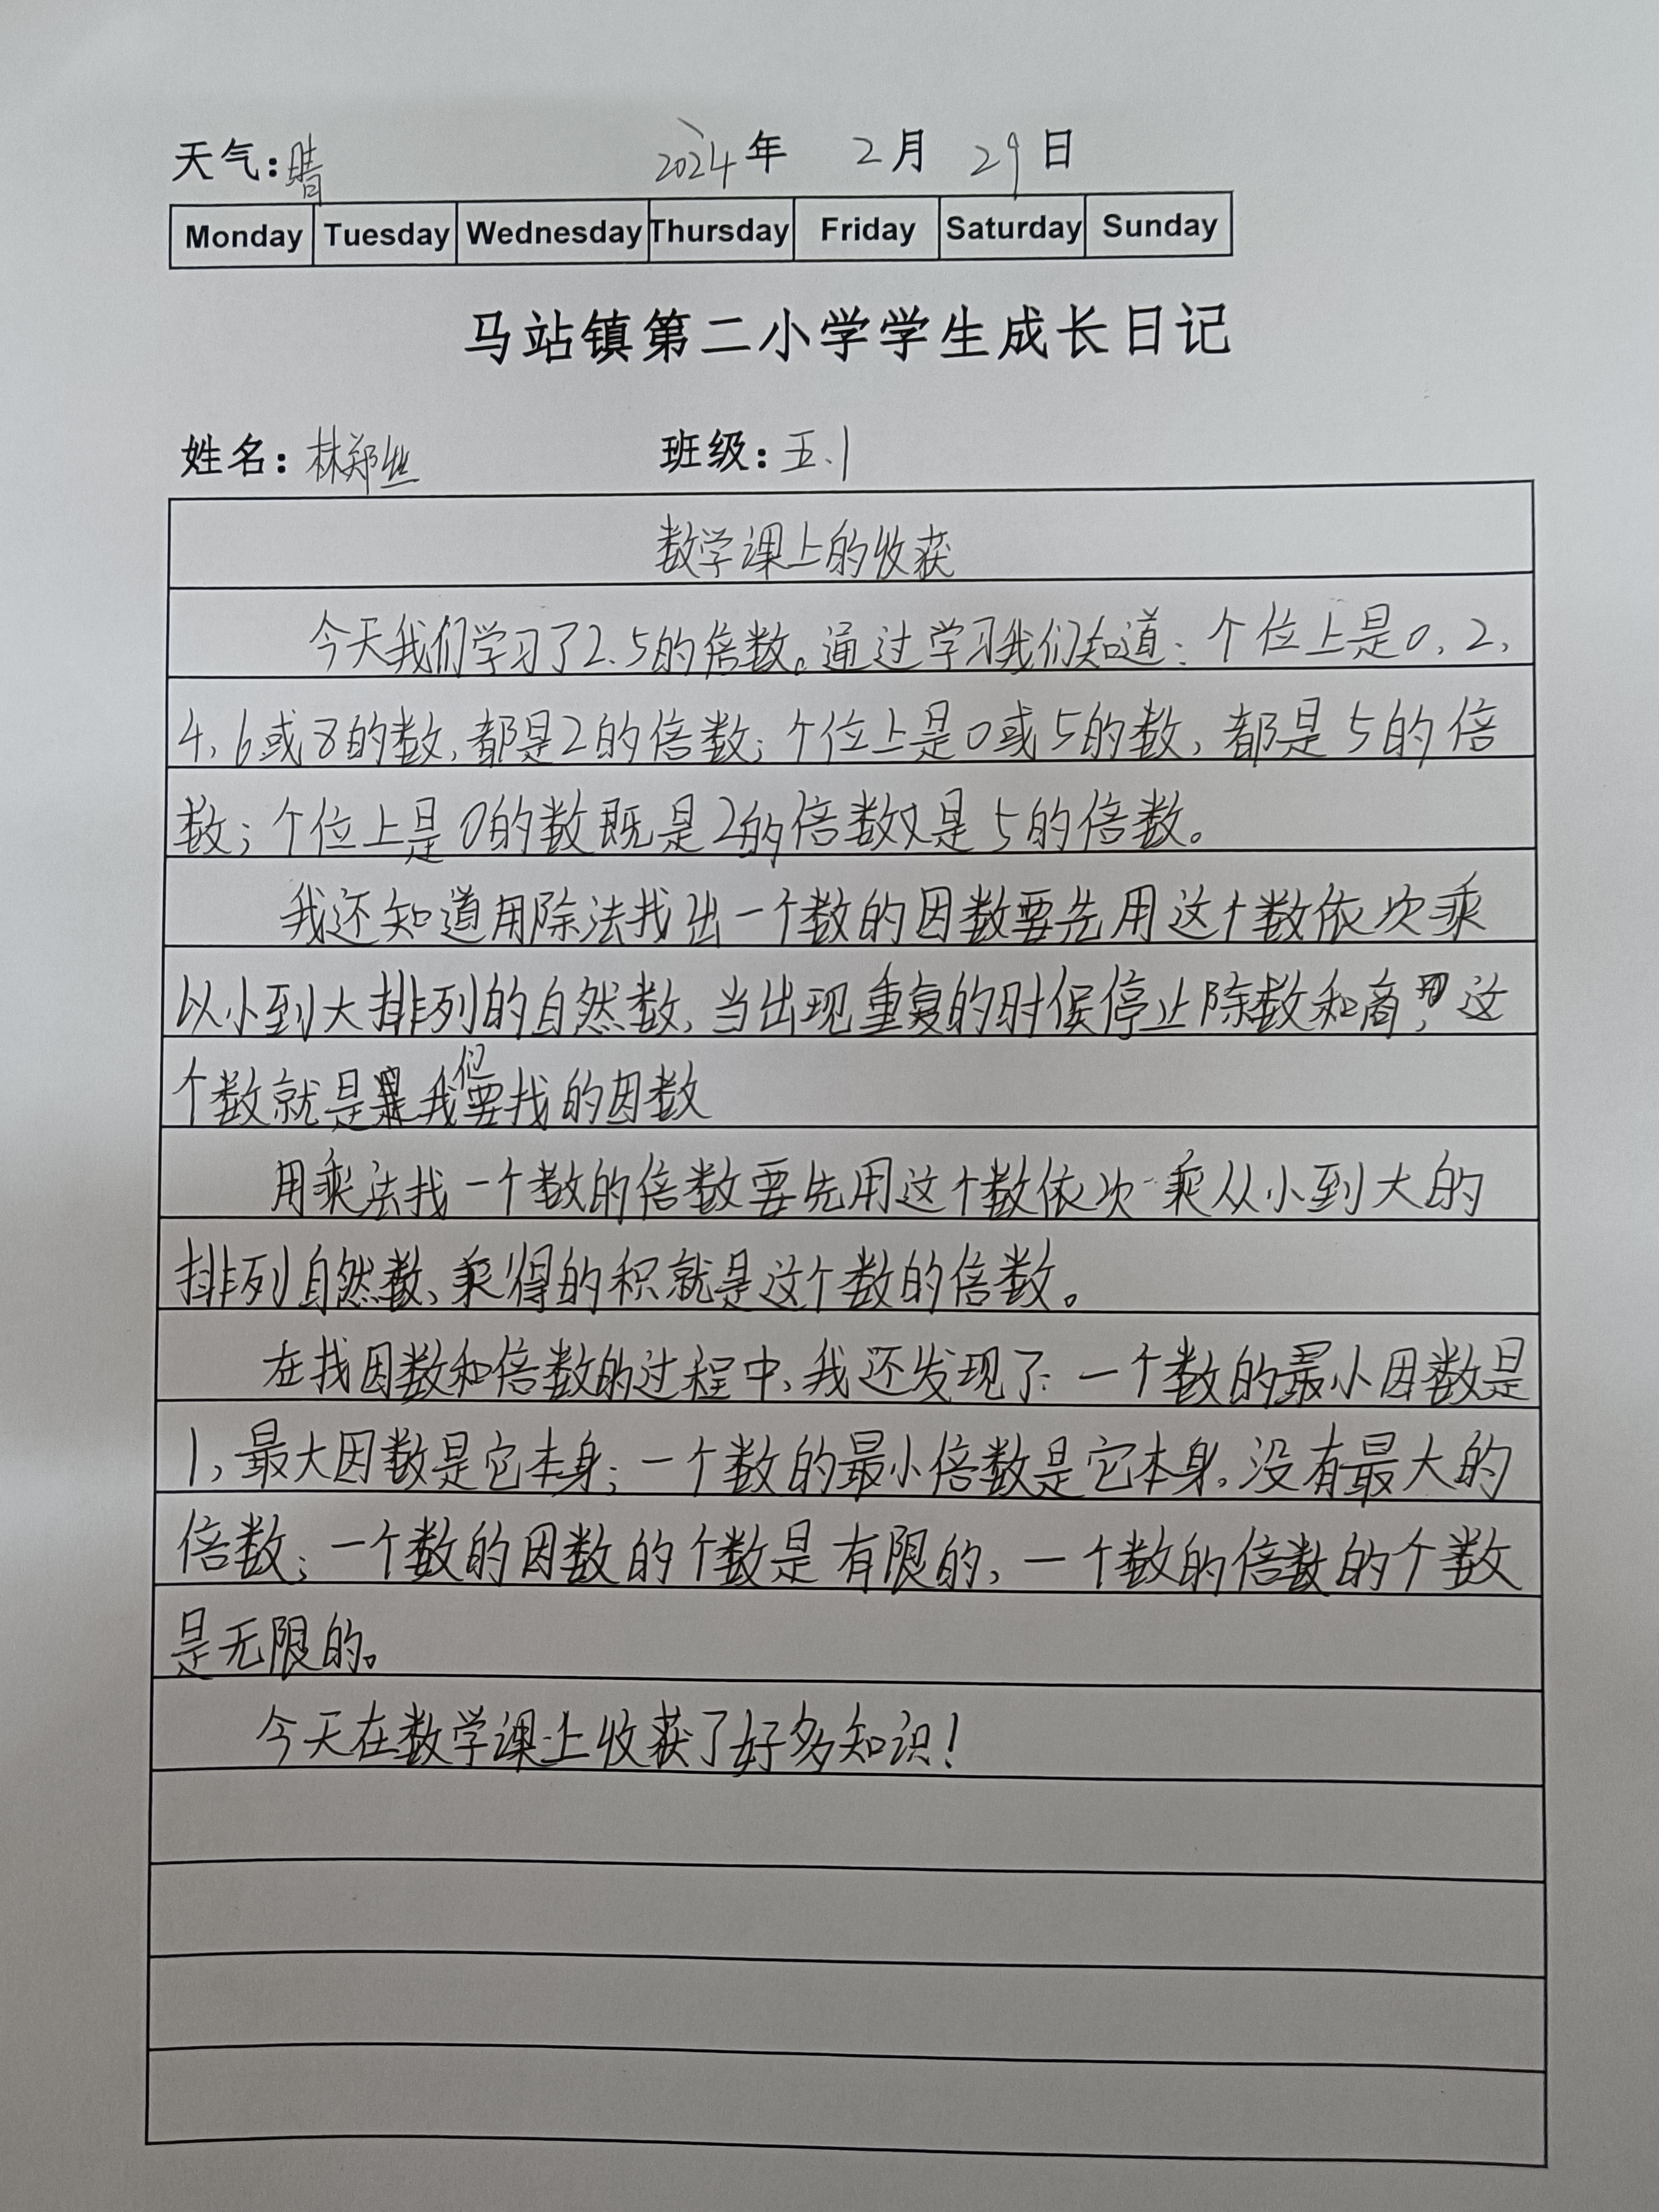 天气:晴 2024年 2月 29日
Monday Tuesday Wednesday Thursday Friday Saturday Sunday
马站镇第二小学学生成长日记
姓名:林郑丝 班级:五.1
数学课上的收获
今天我们学习了2.5的倍数。通过学习我们知道:个位上是0,2,
4,6或8的数,都是2的倍数;个位上是0或5的数,都是5的倍
数;个位上是0的数既是2的倍数又是5的倍数。
我还知道用除法找出一个数的因数要先用这个数依次乘
以小到大排列的自然数,当出现重复的时候停止除数和商,这
个数就是我们要找的因数
用乘法找一个数的倍数要先用这个数依次乘从小到大的
排列自然数、乘得的积就是这个数的倍数。
在找因数和倍数的过程中,我还发现了:一个数的最小因数是
1,最大因数是它本身;一个数的最小倍数是它本身,没有最大的
倍数;一个数的因数的个数是有限的,一个数的倍数的个数
是无限的。
今天在数学课上收获了好多知识!